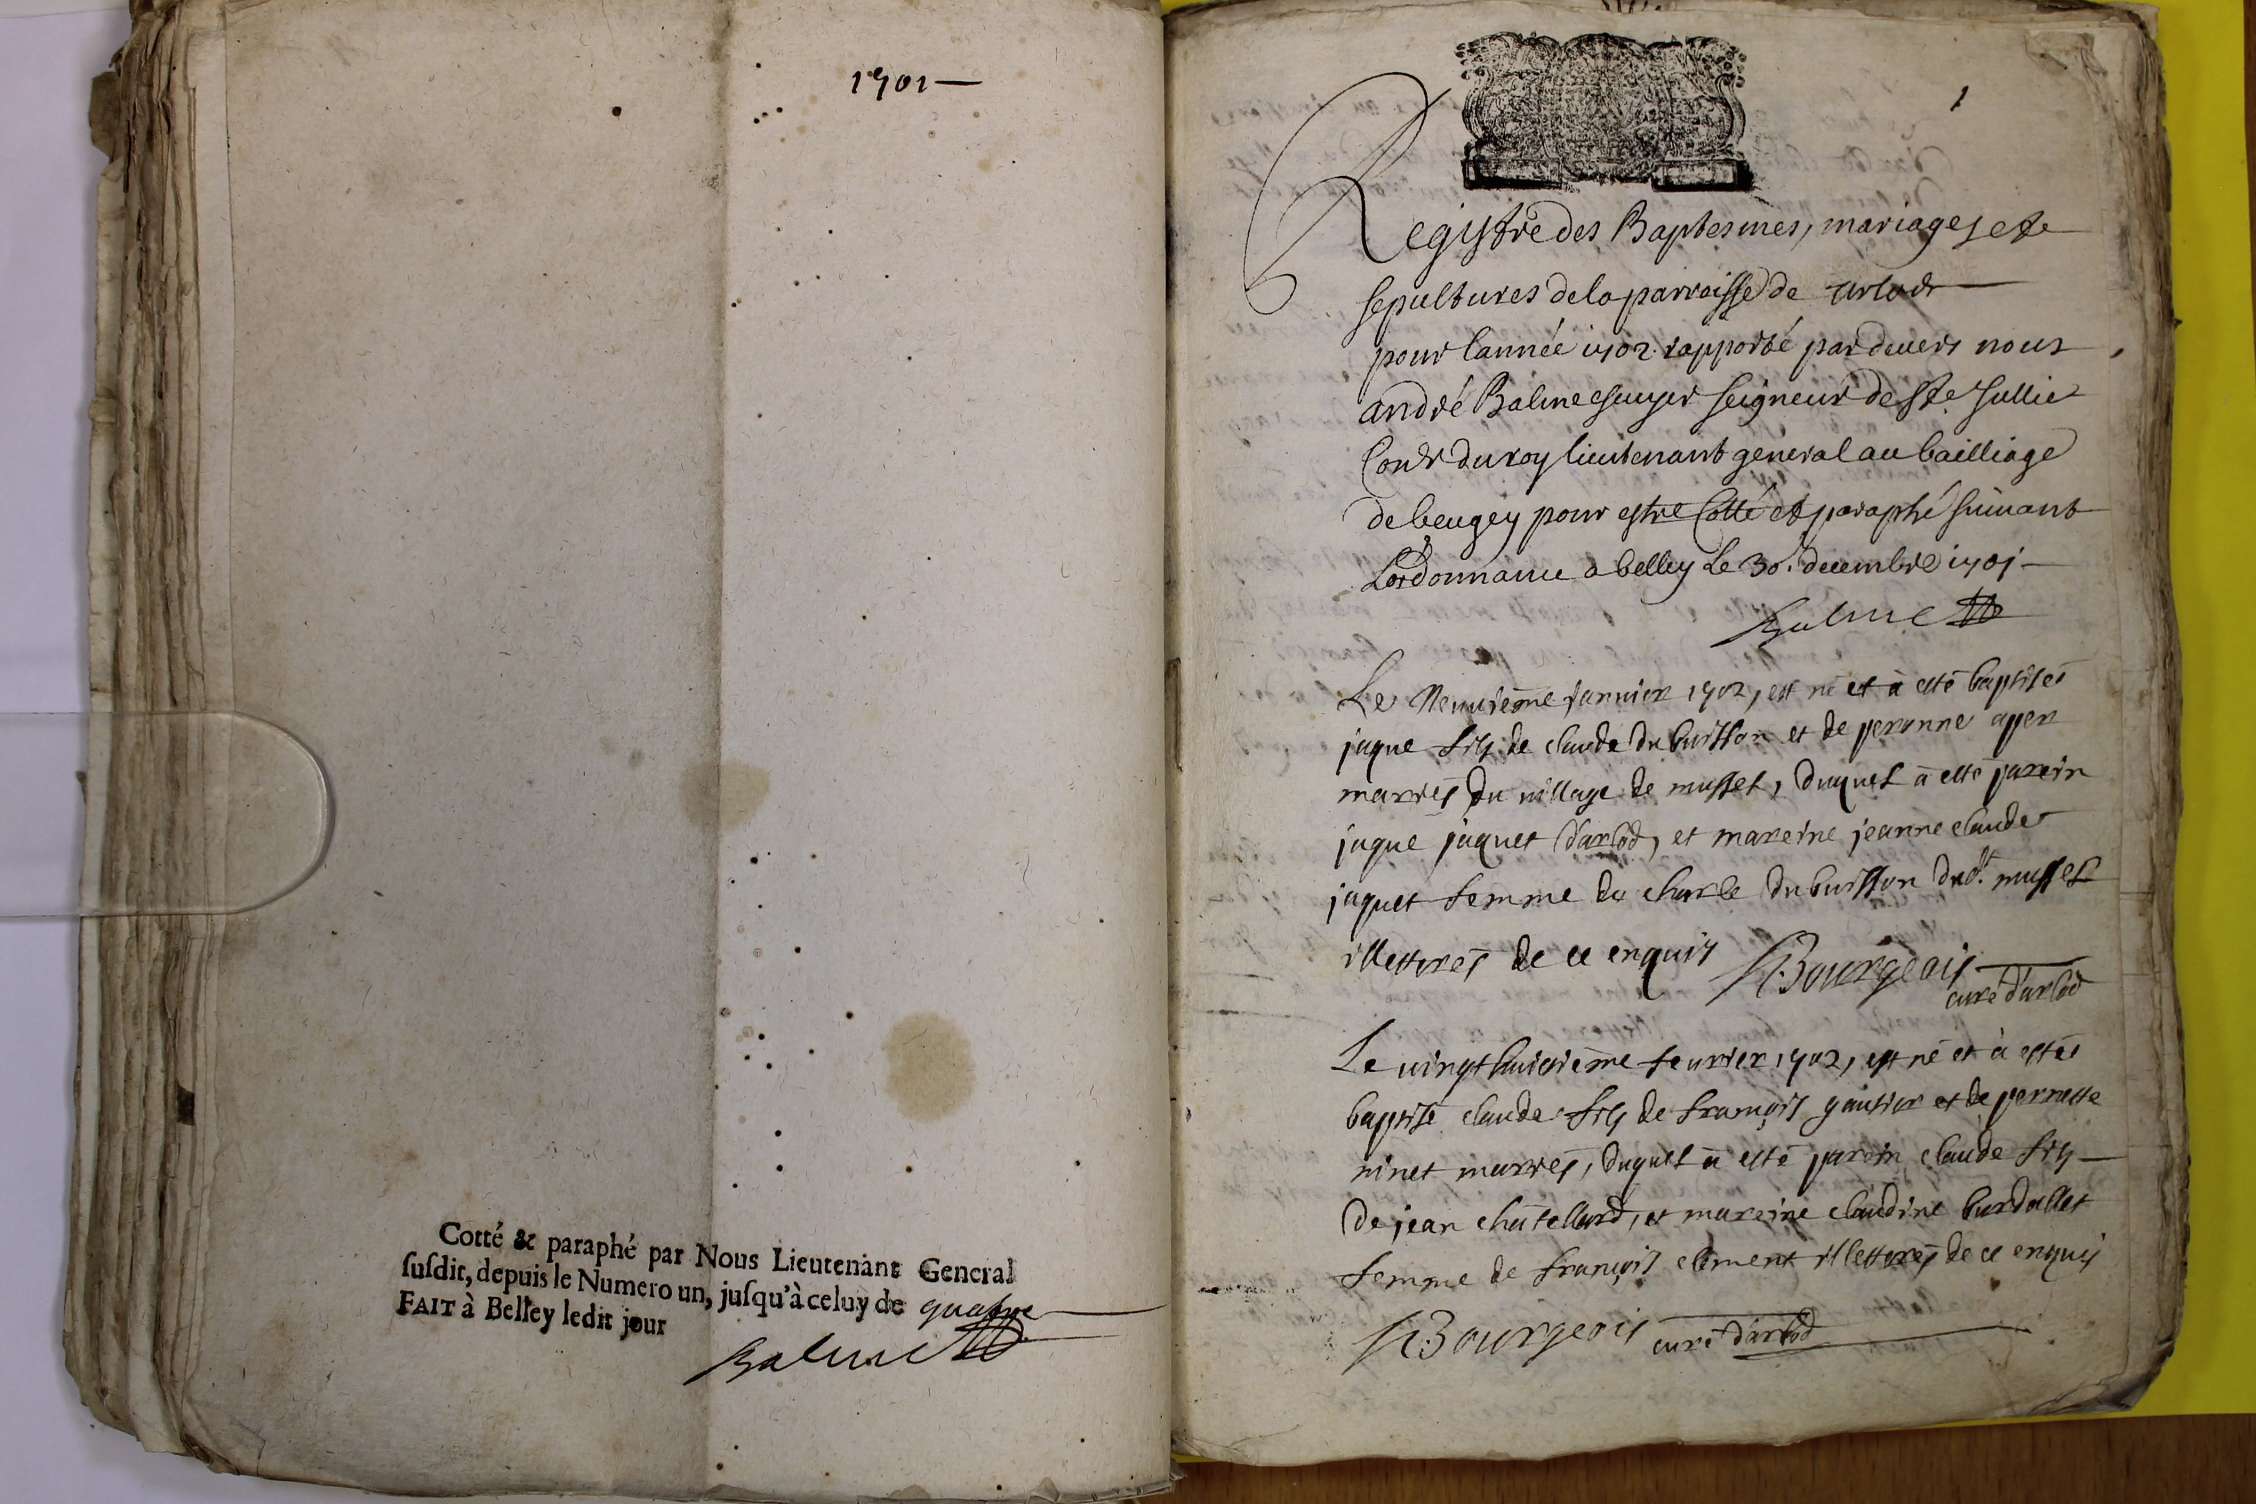 1701
Cotté & paraphé par Nous Lieutenant General
susdit, depuis le Numero un, jusqu'à celuy de quatre
FAIT à Belley ledit jour
Balme
1
Registre des Baptesmes, mariages et
sepultures de la parroisse de Arlod
pour lannée 1702 rapporté par devers nous
andré Balme escuyer seigneur de Ste Jullie
Conr du roy lieutenant general au bailliage
de beugey pour estre Cotté et paraphé suivant
Lordonnance a belley Le 30. decembre 1701
Balme
Le Neuvième janvier 1702, est né et à esté baptisé
jaque fils de claude du buisson et de peronne aper
mariés du village de mussel, duquel à esté parein
jaque jaquet d'arlod, et mareine jeanne claude
jaquet femme de charle du buisson dudt. mussel
illettrés de ce enquis Bourgeois
curé d'arlod
Le vingt huitième fevrier 1702, est né et à esté
baptisé claude fils de françois gautier et de perrette
ninet mariés, duquel à esté parein claude fils
de jean châtellard, et mareine claudine burdallet
femme de françois climent illettrés de ce enquis
Bourgeois curé d'arlod